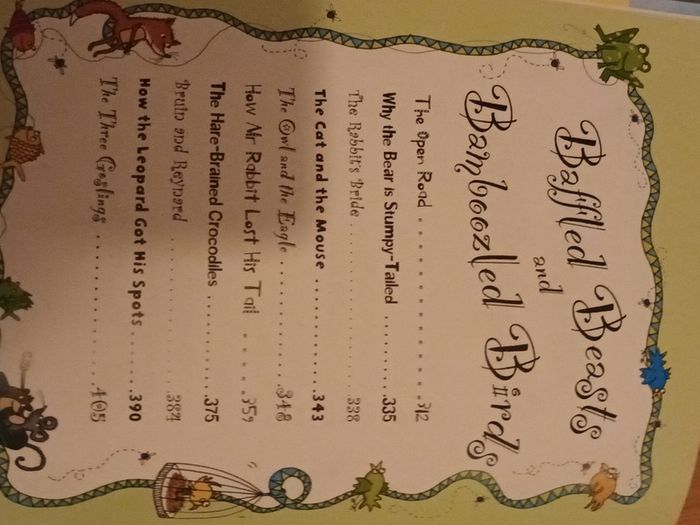 Baffled Beasts
and
Bamboozled Birds
The Open Road . . . . . . . . . . . . . . . . . 312
Why the Bear is Stumpy-Tailed . . . . . . . . . 335
The Rabbit's Bride . . . . . . . . . . . . . . . 338
The Cat and the Mouse . . . . . . . . . . . . . 343
The Owl and the Eagle . . . . . . . . . . . . . 348
How Mr Rabbit Lost His Tail . . . . . 359
The Hare-Brained Crocodiles . . . . . . . . . . 375
Bruin and Reynard . . . . . . . . . . . . . . . 384
How the Leopard Got His Spots . . . . . . 390
The Three Goslings . . . . . . . . . . . . . 405